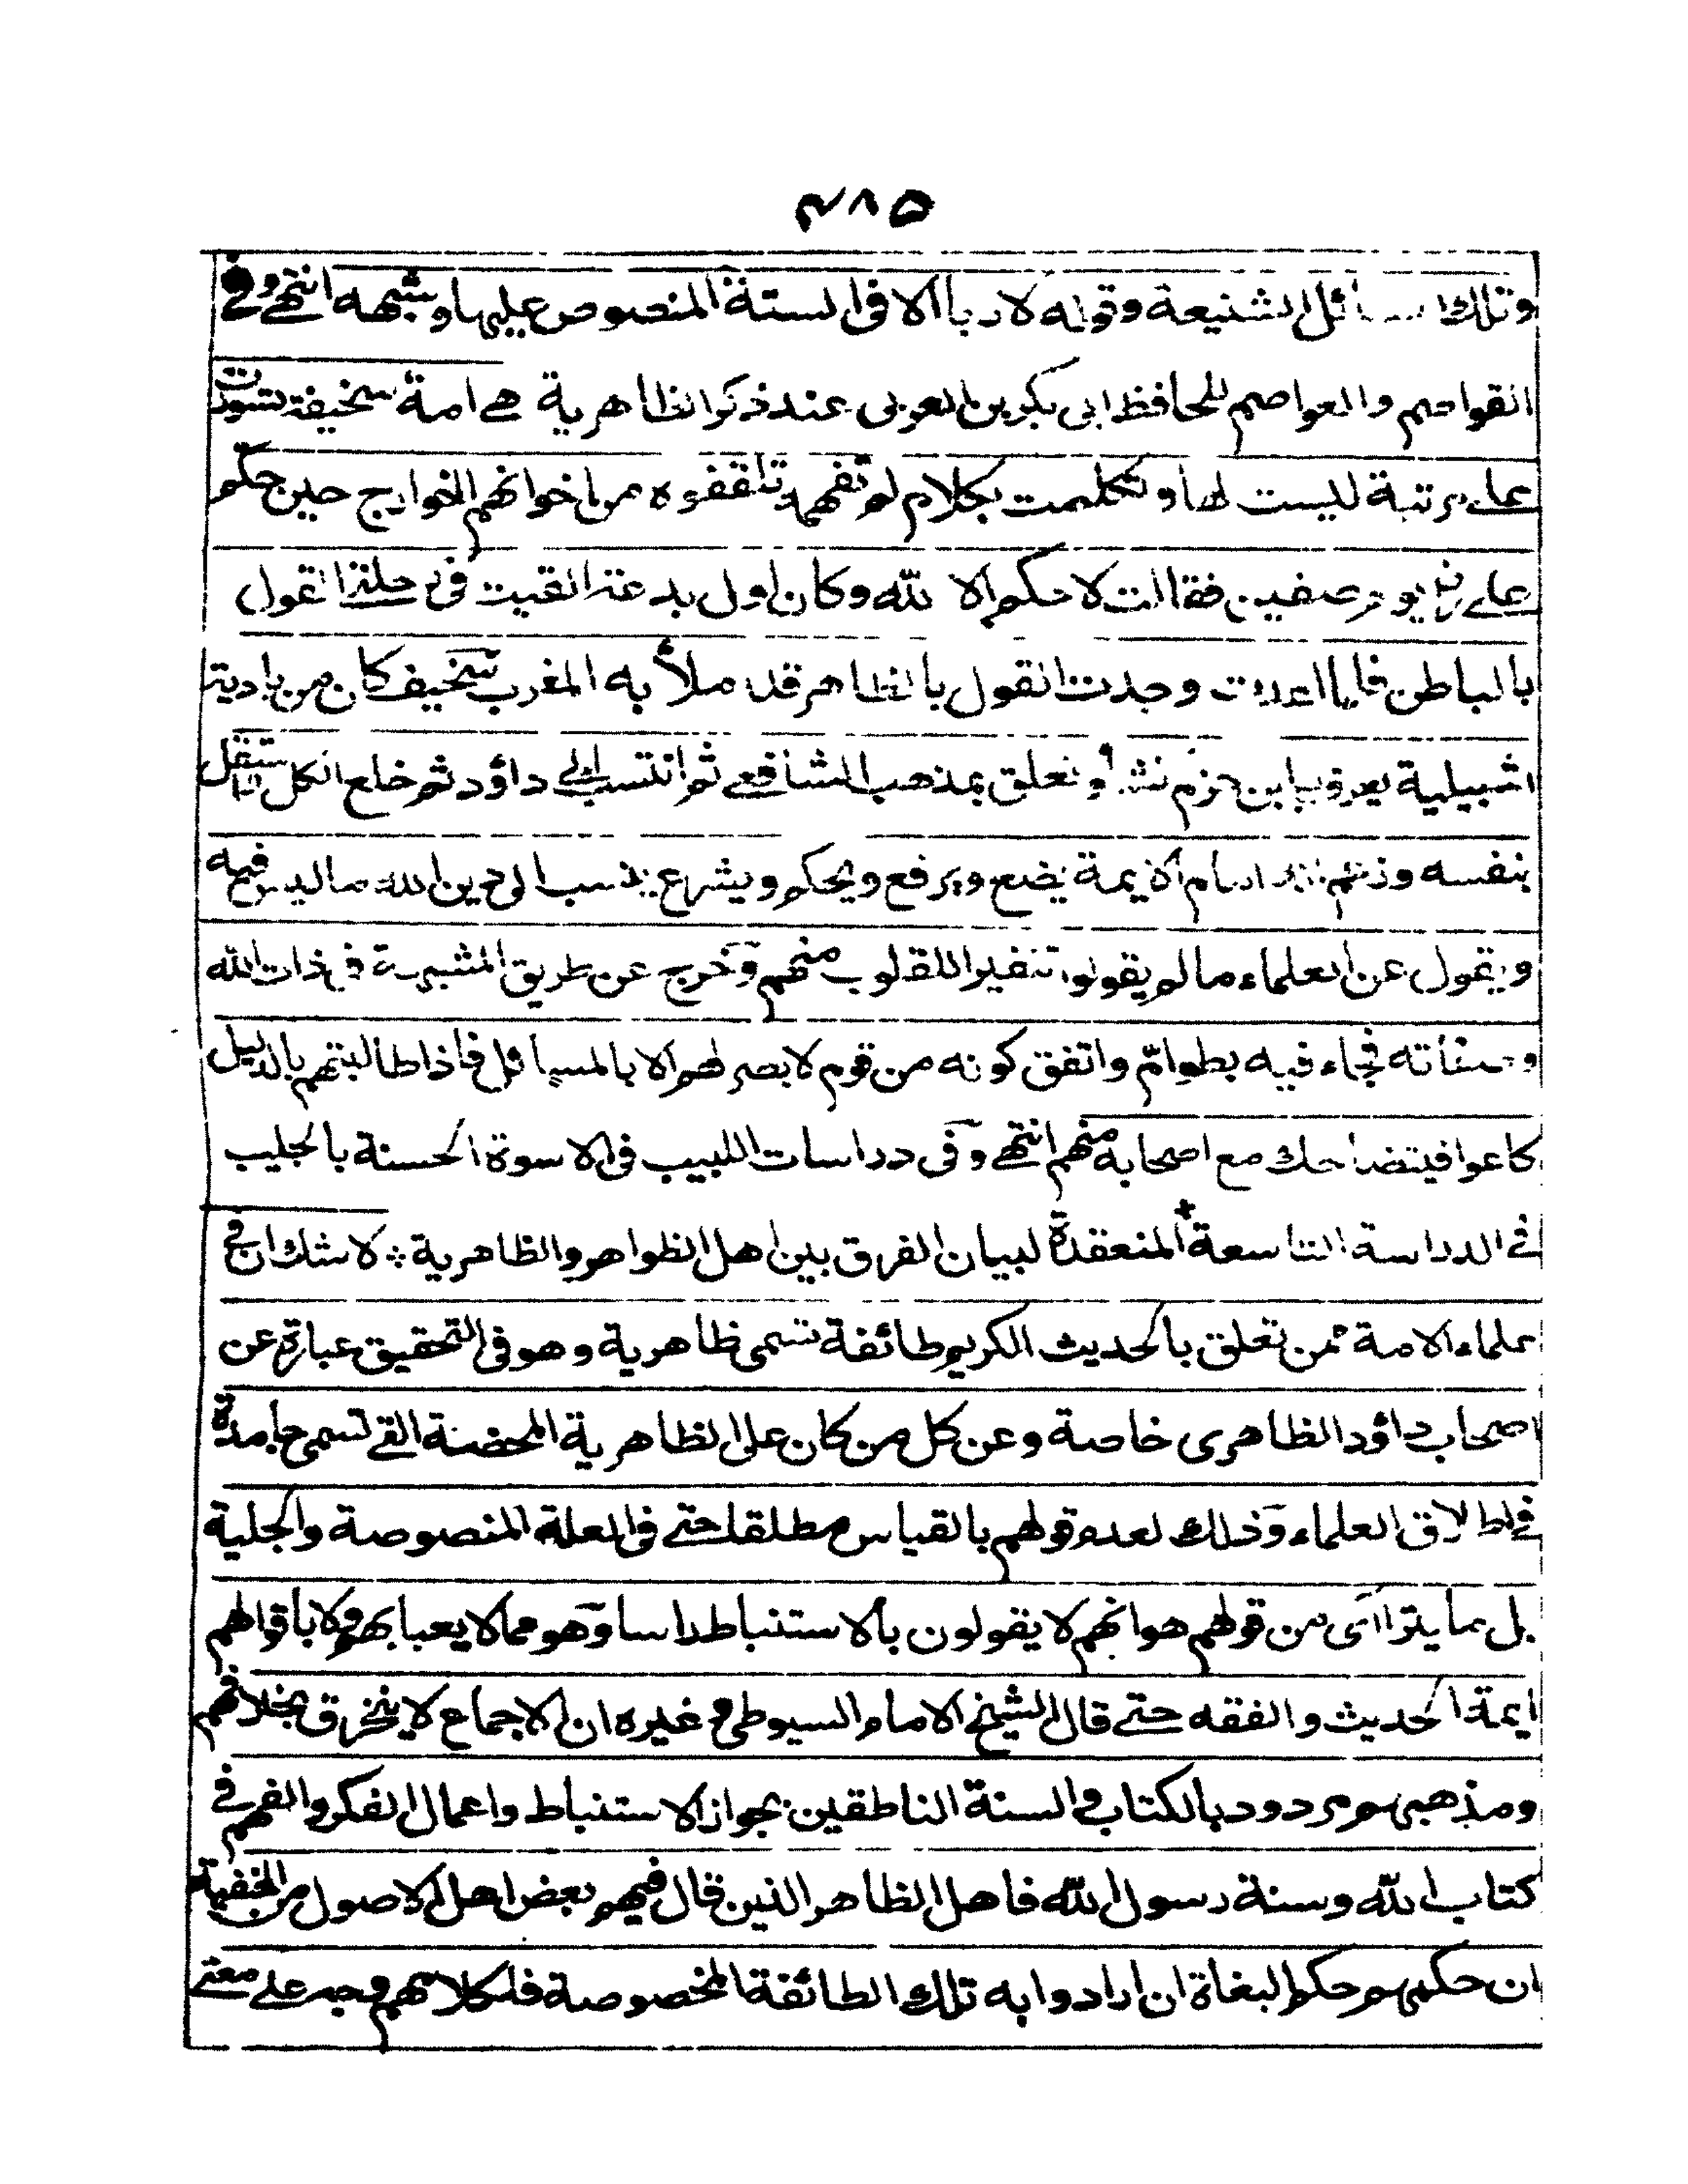 ۴۸۵
وتلك المسائل الشنيعة وقوله لا ربا الا فى الستة المنصوص عليها وشبهه انتهى وفى
القواصم والعواصم للحافظ ابى بكر بن العربى عند ذكر الظاهرية هى امة سخيفة تسورت
على مرتبة ليست لها وتكلمت بكلام لم تفهمه تلقفوه من اخوانهم الخوارج حين حكم
على رض يوم صفين فقالت لا حكم الا لله وكان اول بدعة لقيت فى رحلتى القول
بالباطن فلما عدت وجدت القول بالظاهر قد ملأ به المغرب سخيف كان من بادية
اشبيلية يعرف بابن حزم نشأ وتعلق بمذهب الشافعى ثم انتسب الى داؤد ثم خلع الكل استقل
بنفسه وزعم انه امام الايمة يضع ويرفع ويحكم ويشرع ينسب الى دين الله ما ليس فيه
ويقول عن العلماء ما لم يقولوا تنفيرا للقلوب منهم وخرج عن طريق المشبهة فى ذات الله
وصفاته فجاء فيه بطوامّ واتفق كونه من قوم لا بصر لهم الا بالمسائل فاذا طالبتهم بالدليل
كاعوا فيتضاحك مع اصحابه منهم انتهى وفى دراسات اللبيب فى الاسوة الحسنة بالحبيب
فى الدراسة التاسعة المنعقدة لبيان الفرق بين اهل الظواهر والظاهرية لا شك ان فى
علماء الامة ممن تعلق بالحديث الكريم طائفة تسمى ظاهرية وهو فى التحقيق عبارة عن
اصحاب داؤد الظاهرى خاصة وعن كل من كان على الظاهرية المحضة التى تسمى جامدة
فى اطلاق العلماء وذلك لعدم قولهم بالقياس مطلقا حتى فى العلة المنصوصة والجلية
بل ما يتراأى من قولهم هو انهم لا يقولون بالاستنباط راسا وهو مما لا يعبا بهم ولا باقوالهم
ايمة الحديث والفقه حتى قال الشيخ الامام السيوطى وغيره ان الاجماع لا ينخرق بخلافهم
ومذهبهم مردود بالكتاب والسنة الناطقين بجواز الاستنباط واعمال الفكر والفهم فى
كتاب الله وسنة رسول الله فاهل الظاهر الذين قال فيهم بعض اهل الاصول من الحنفية
ان حكمهم حكم البغاة ان ارادوا به تلك الطائفة المخصوصة فلكلامهم وجه على معنى